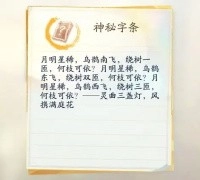 神秘字条
月明星稀，乌鹊南飞，绕树一
匝，何枝可依？月明星稀，乌鹊
东飞，绕树双匝，何枝可依？月
明星稀，乌鹊西飞，绕树三匝，
何枝可依？——灵曲三盏灯，风
摆满庭花